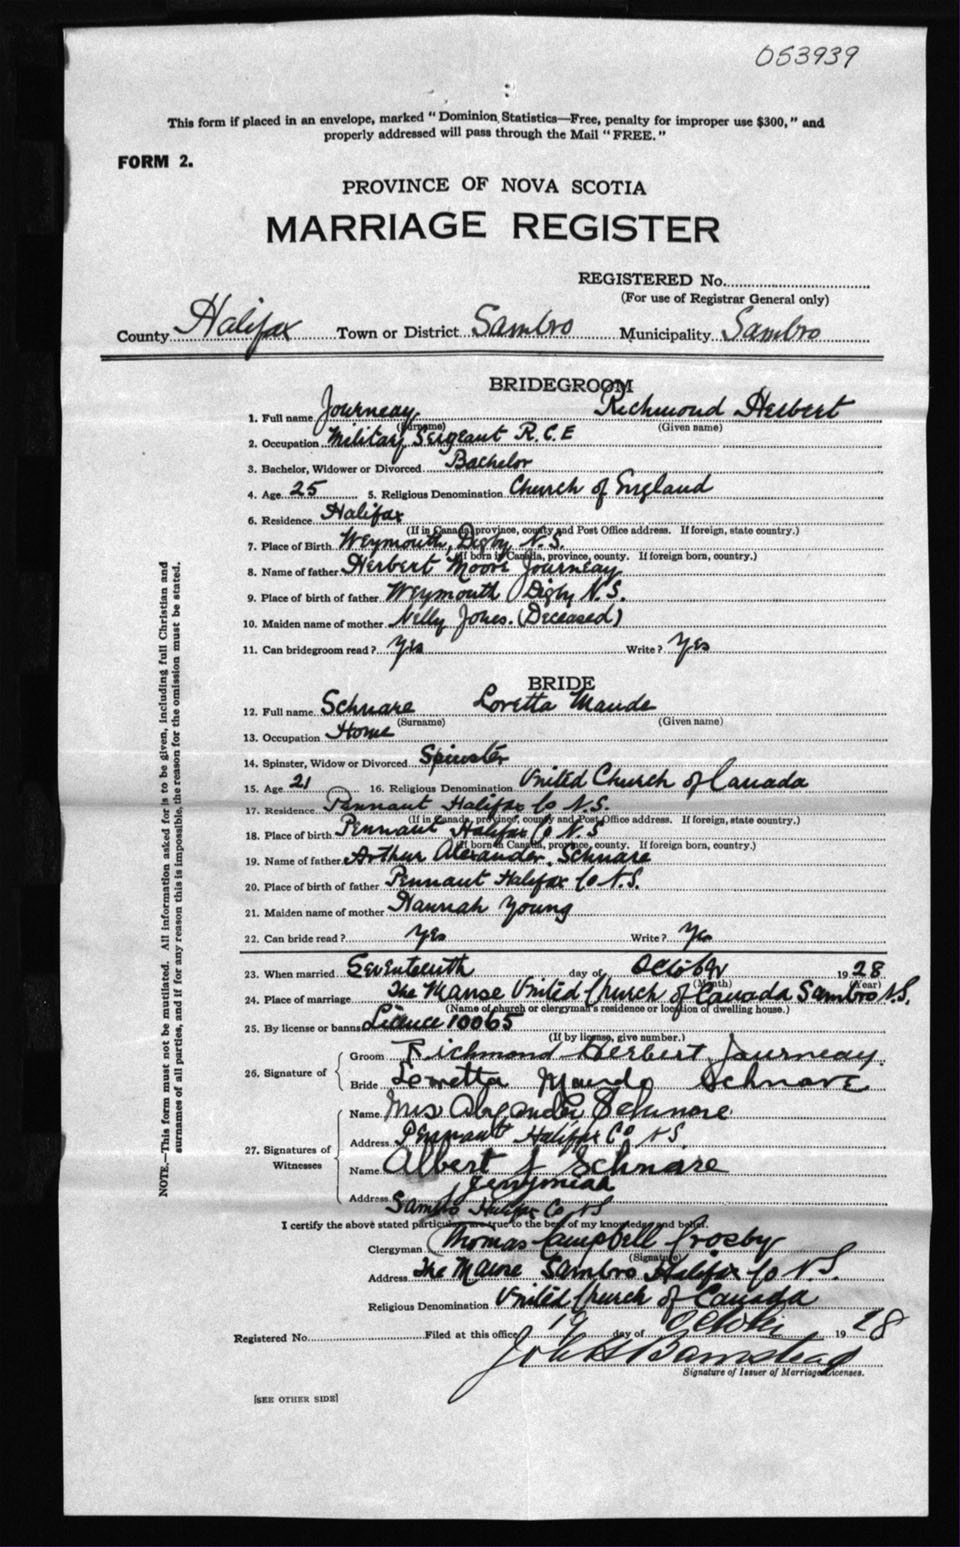 053939
This form if placed in an envelope, marked "Dominion Statistics—Free, penalty for improper use $300," and
properly addressed will pass through the Mail "FREE."
FORM 2.
PROVINCE OF NOVA SCOTIA
MARRIAGE REGISTER
REGISTERED No.
(For use of Registrar General only)
County Halifax Town or District Sambro Municipality Sambro
BRIDEGROOM
1. Full name Journeay Richmond Herbert
(Surname) (Given name)
2. Occupation Military Sergeant R.C.E
3. Bachelor, Widower or Divorced Bachelor
4. Age 25 5. Religious Denomination Church of England
6. Residence Halifax
(If in Canada, province, county and Post Office address. If foreign, state country.)
7. Place of Birth Weymouth, Digby N.S.
(If born in Canada, province, county. If foreign born, country.)
8. Name of father Herbert Moore Journeay
9. Place of birth of father Weymouth Digby N.S.
10. Maiden name of mother Nelly Jones. (Deceased)
11. Can bridegroom read? Yes Write? Yes
BRIDE
12. Full name Schnare Loretta Maude
(Surname) (Given name)
13. Occupation Home
14. Spinster, Widow or Divorced Spinster
15. Age 21 16. Religious Denomination United Church of Canada
17. Residence Pennant Halifax Co N.S.
(If in Canada, province, county and Post Office address. If foreign, state country.)
18. Place of birth Pennant Halifax Co N.S
(If born in Canada, province, county. If foreign born, country.)
19. Name of father Arthur Alexander Schnare
20. Place of birth of father Pennant Halifax Co N.S.
21. Maiden name of mother Hannah Young
22. Can bride read? Yes Write? Yes
23. When married Seventeenth day of October 1928
(Month) (Year)
24. Place of marriage The Manse United Church of Canada Sambro N.S.
(Name of church or clergyman's residence or location of dwelling house.)
25. By license or banns Licence 10065
(If by license, give number.)
26. Signature of
Groom Richmond Herbert Journeay
Bride Loretta Maude Schnare
27. Signatures of Witnesses
Name Mrs Alexander Schnare
Address Pennant Halifax Co N.S.
Name Albert J Schnare
Address Sambro Halifax Co N.S
I certify the above stated particulars are true to the best of my knowledge and belief.
Clergyman Thomas Campbell Crosby
(Signature)
Address The Manse Sambro Halifax Co N.S.
Religious Denomination United Church of Canada
Registered No. Filed at this office 19 day of October 1928
Signature of Issuer of Marriage Licenses.
[SEE OTHER SIDE]
NOTE.—This form must not be mutilated. All information asked for is to be given, including full Christian and
surnames of all parties, and if for any reason this is impossible, the reason for the omission must be stated.